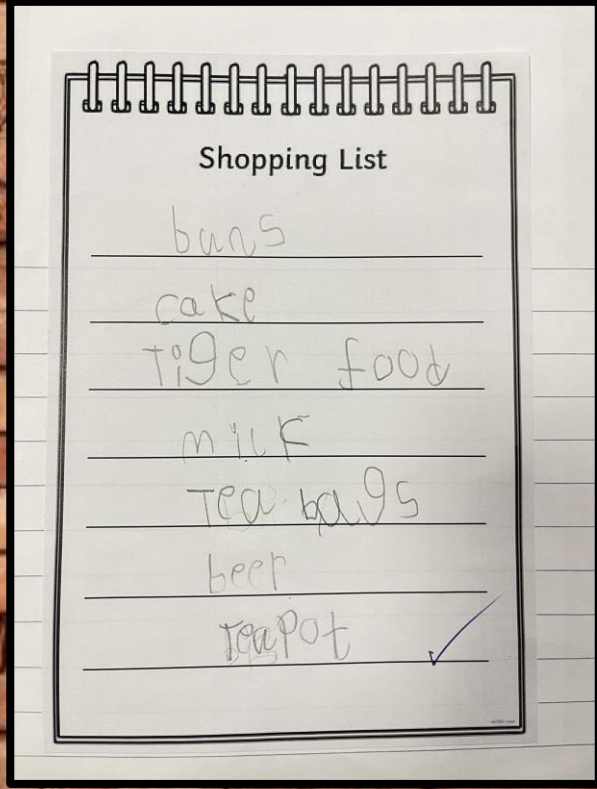 Shopping List
buns
cake
Tiger food
milk
Tea bags
beer
Teapot